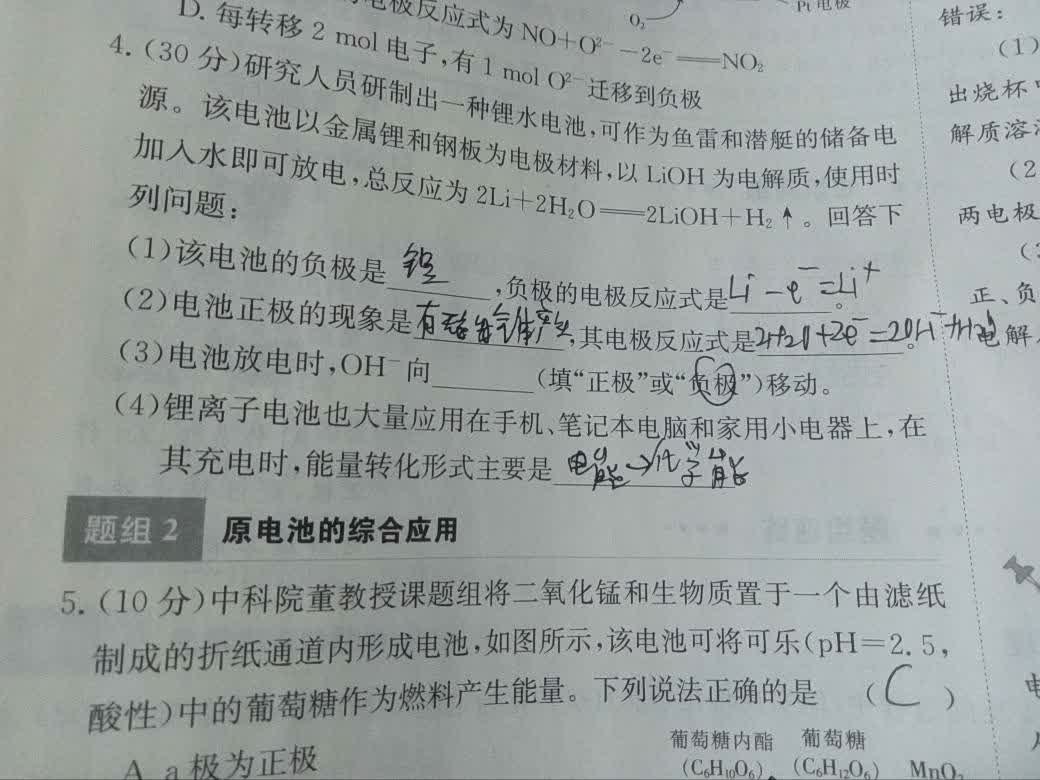 电极反应式为NO+O²⁻-2e⁻══NO₂
O₂
Pt电极
D. 每转移2 mol电子,有1 mol O²⁻迁移到负极
4. (30分)研究人员研制出一种锂水电池,可作为鱼雷和潜艇的储备电
源。该电池以金属锂和钢板为电极材料,以LiOH为电解质,使用时
加入水即可放电,总反应为2Li+2H₂O══2LiOH+H₂↑。回答下
列问题:
(1)该电池的负极是 锂 ,负极的电极反应式是 Li-e⁻=Li⁺ 。
(2)电池正极的现象是 有 气体产生 ,其电极反应式是 2H2O+2e⁻=2OH⁻+H2↑ 。
(3)电池放电时,OH⁻向______(填“正极”或“负极”)移动。
(4)锂离子电池也大量应用在手机、笔记本电脑和家用小电器上,在
其充电时,能量转化形式主要是 电能→化学能
题组2 原电池的综合应用
5. (10分)中科院董教授课题组将二氧化锰和生物质置于一个由滤纸
制成的折纸通道内形成电池,如图所示,该电池可将可乐(pH=2.5,
酸性)中的葡萄糖作为燃料产生能量。下列说法正确的是 ( C )
葡萄糖内酯 葡萄糖
(C₆H₁₀O₆) (C₆H₁₂O₆) MnO₂
A. a极为正极
错误:
(1)
出烧杯
解质溶
(2
两电极
正、负
电解